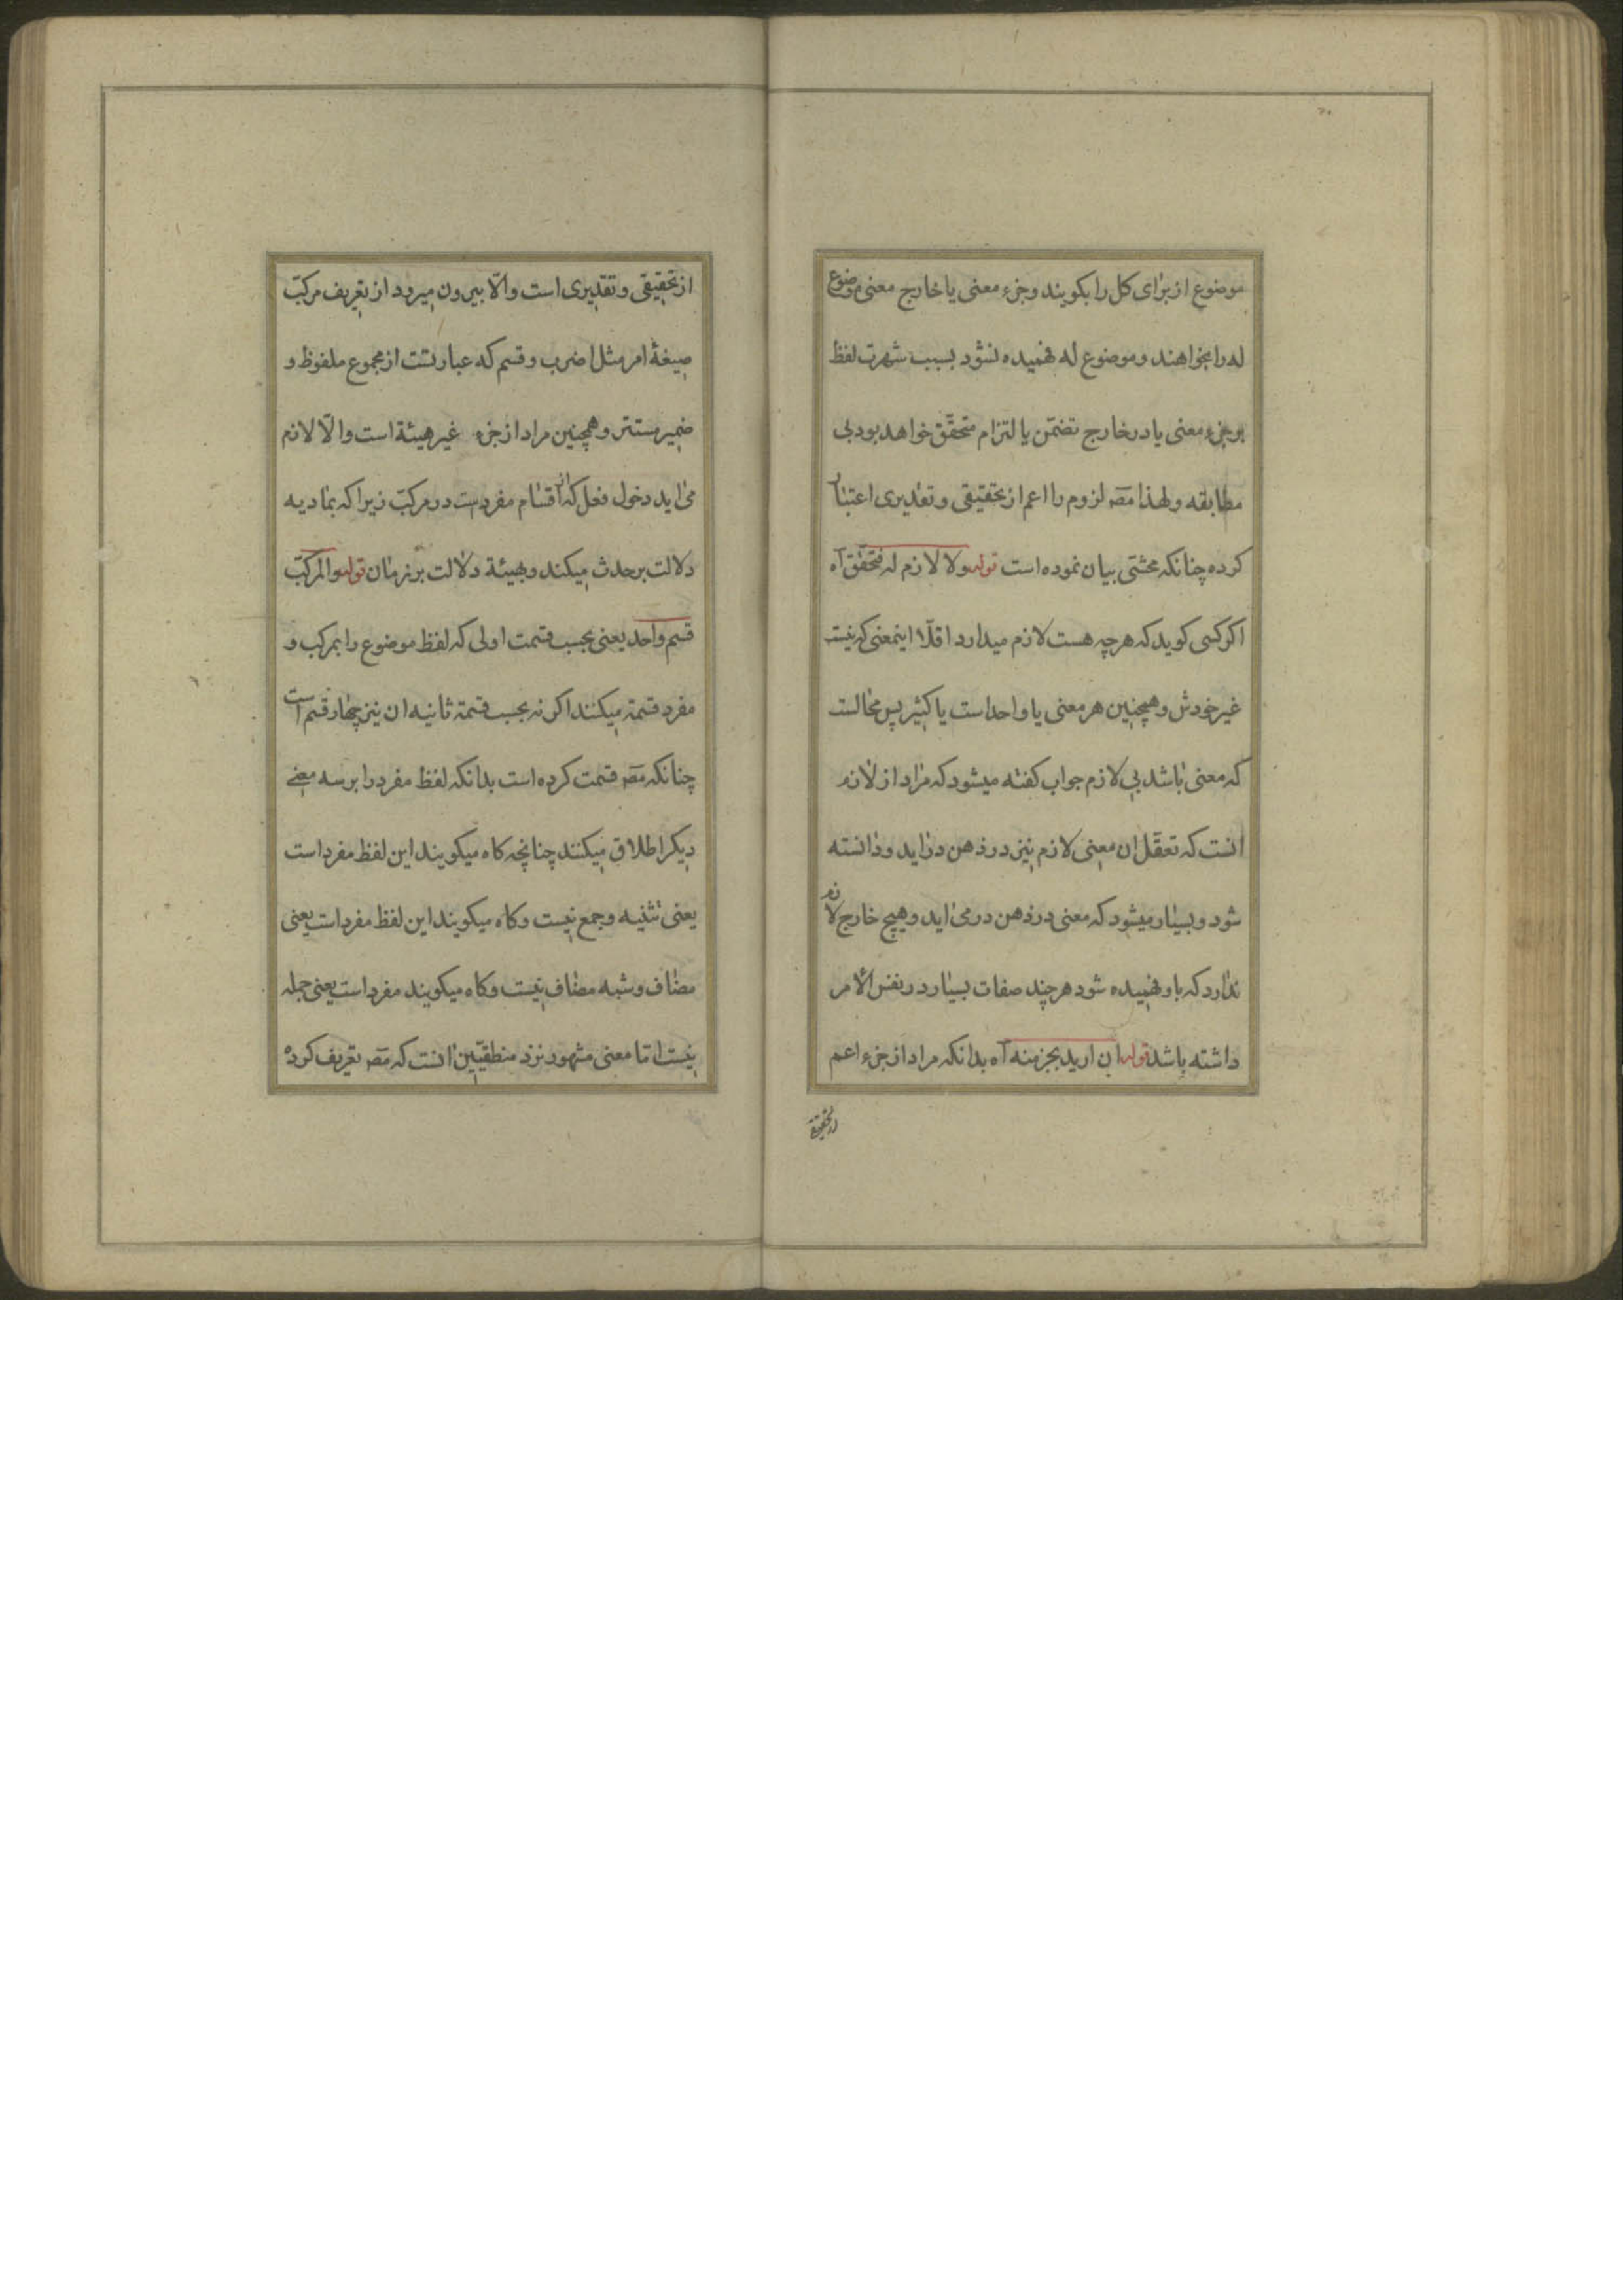 موضوع از برای کل را بکویند و جزء معنی یا خارج معنی موضوع
له را بخواهند و موضوع له فهمیده نشود بسبب شهرت لفظ
بر جزء معنی یا در خارج تضمّن یا التزام متحقّق خواهد بود بی
مطابقه و لهذا مصّ لزوم را اعم از تحقیقی و تقدیری اعتبار
کرده چنانکه محشّی بیان نموده است قوله ولا لازم له فتحقق آه
اکر کسی کوید که هرچه هست لازم میدارد اقلّا اینمعنی که نیست
غیر خودش و همچنین هر معنی یا واحد است یا کثیر پس محالست
که معنی باشد بی لازم جواب کفته میشود که مراد از لازم
آنست که تعقّل ان معنی لازم نیز در ذهن در اید و دانسته
شود و بسیار میشود که معنی در ذهن در می اید و هیچ خارج لازم
ندارد که باو فهمیده شود هرچند صفات بسیار در نفس الامر
داشته باشد قوله ان ارید بجزء منه آه بدانکه مراد از جزء اعم
از تحقیقی و تقدیری است والّا بیرون میرود از تعریف مرکّب
صیغهٔ امر مثل اضرب و قسم که عبارتست از مجموع ملفوظ و
ضمیر مستتر و همچنین مراد از جزء غیر هیئة است والّا لازم
می اید دخول فعل که از اقسام مفردست در مرکّب زیرا که بمادیه
دلالت بر حدث میکند و بهیئة دلالت بر زمان قوله والمرکّب
قسم واحد یعنی بحسب قسمت اولی که لفظ موضوع را بمرکب و
مفرد قسمة میکنند اکر نه بحسب قسمة ثانیه ان نیز چهار قسم است
چنانکه مصّ قسمت کرده است بدانکه لفظ مفرد را بر سه معنی
دیکر اطلاق میکنند چنانچه کاه میکویند این لفظ مفرد است
یعنی تثنیه و جمع نیست و کاه میکویند این لفظ مفرد است یعنی
مضاف و شبه مضاف نیست و کاه میکویند مفرد است یعنی جمله
نیست امّا معنی مشهور نزد منطقیّین آنست که مصّ تعریف کرده